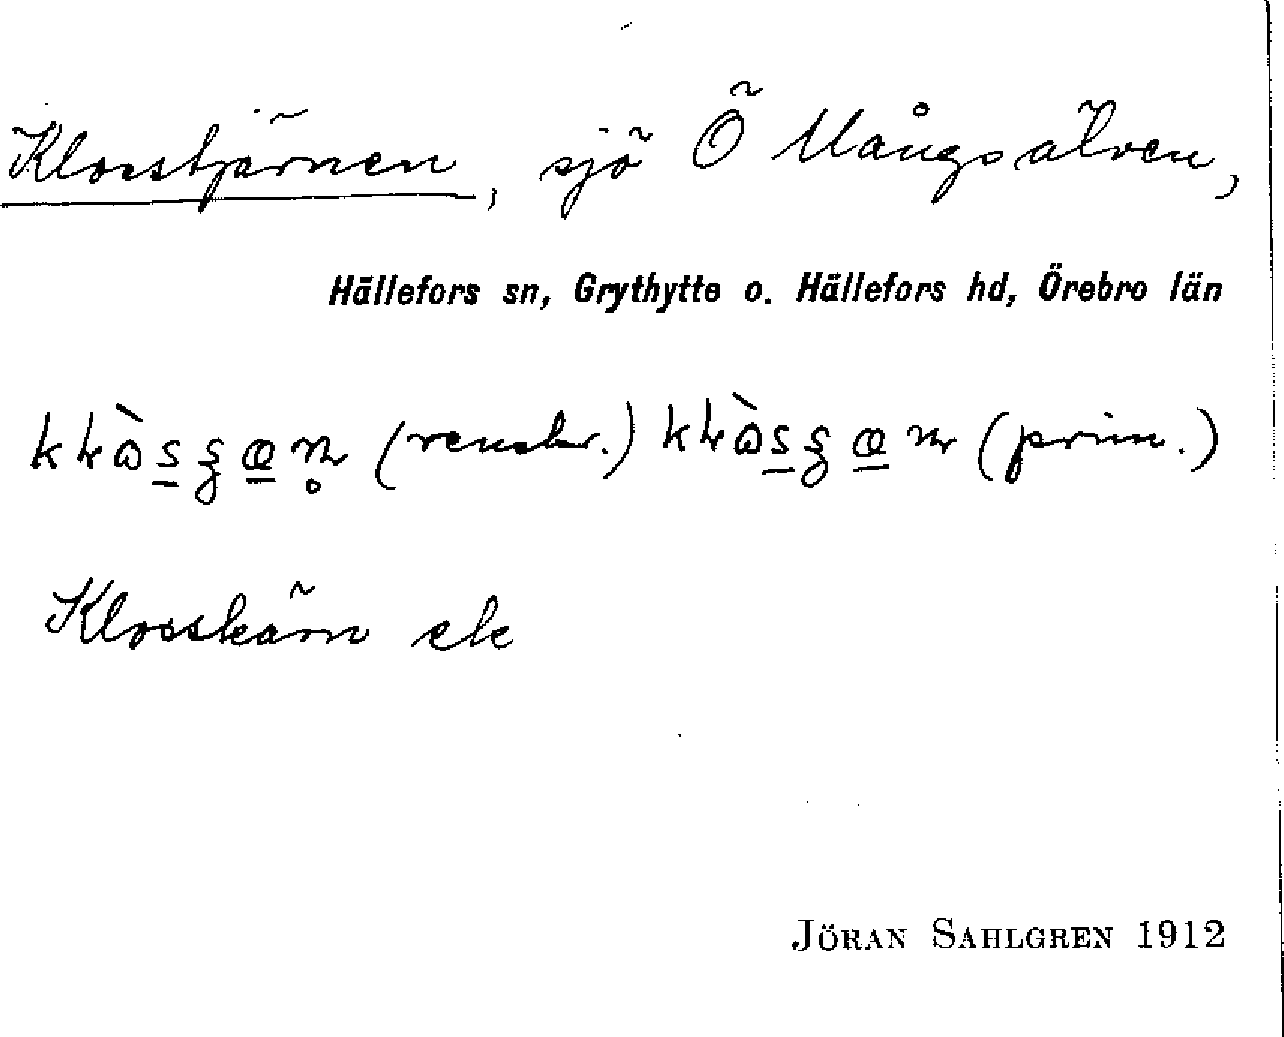 Klosstjärnen, sjö Ö Mångsälven,
Hällefors sn, Grythytte o. Hällefors hd, Örebro län
(renskr.) (prim.)
Klosskärn ek
JÖRAN SAHLGREN 1912